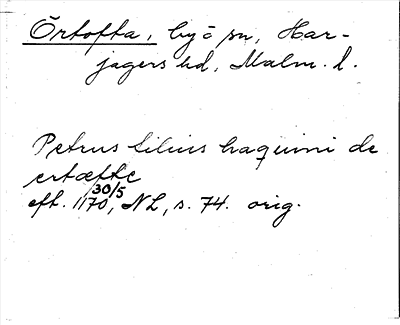 Örtofta, by ō sn, Har-
jagers hd, Malm. l.
Petrus filius haquini de
ertæfte
eft. 1170 30/5, NL, s. 74. orig.